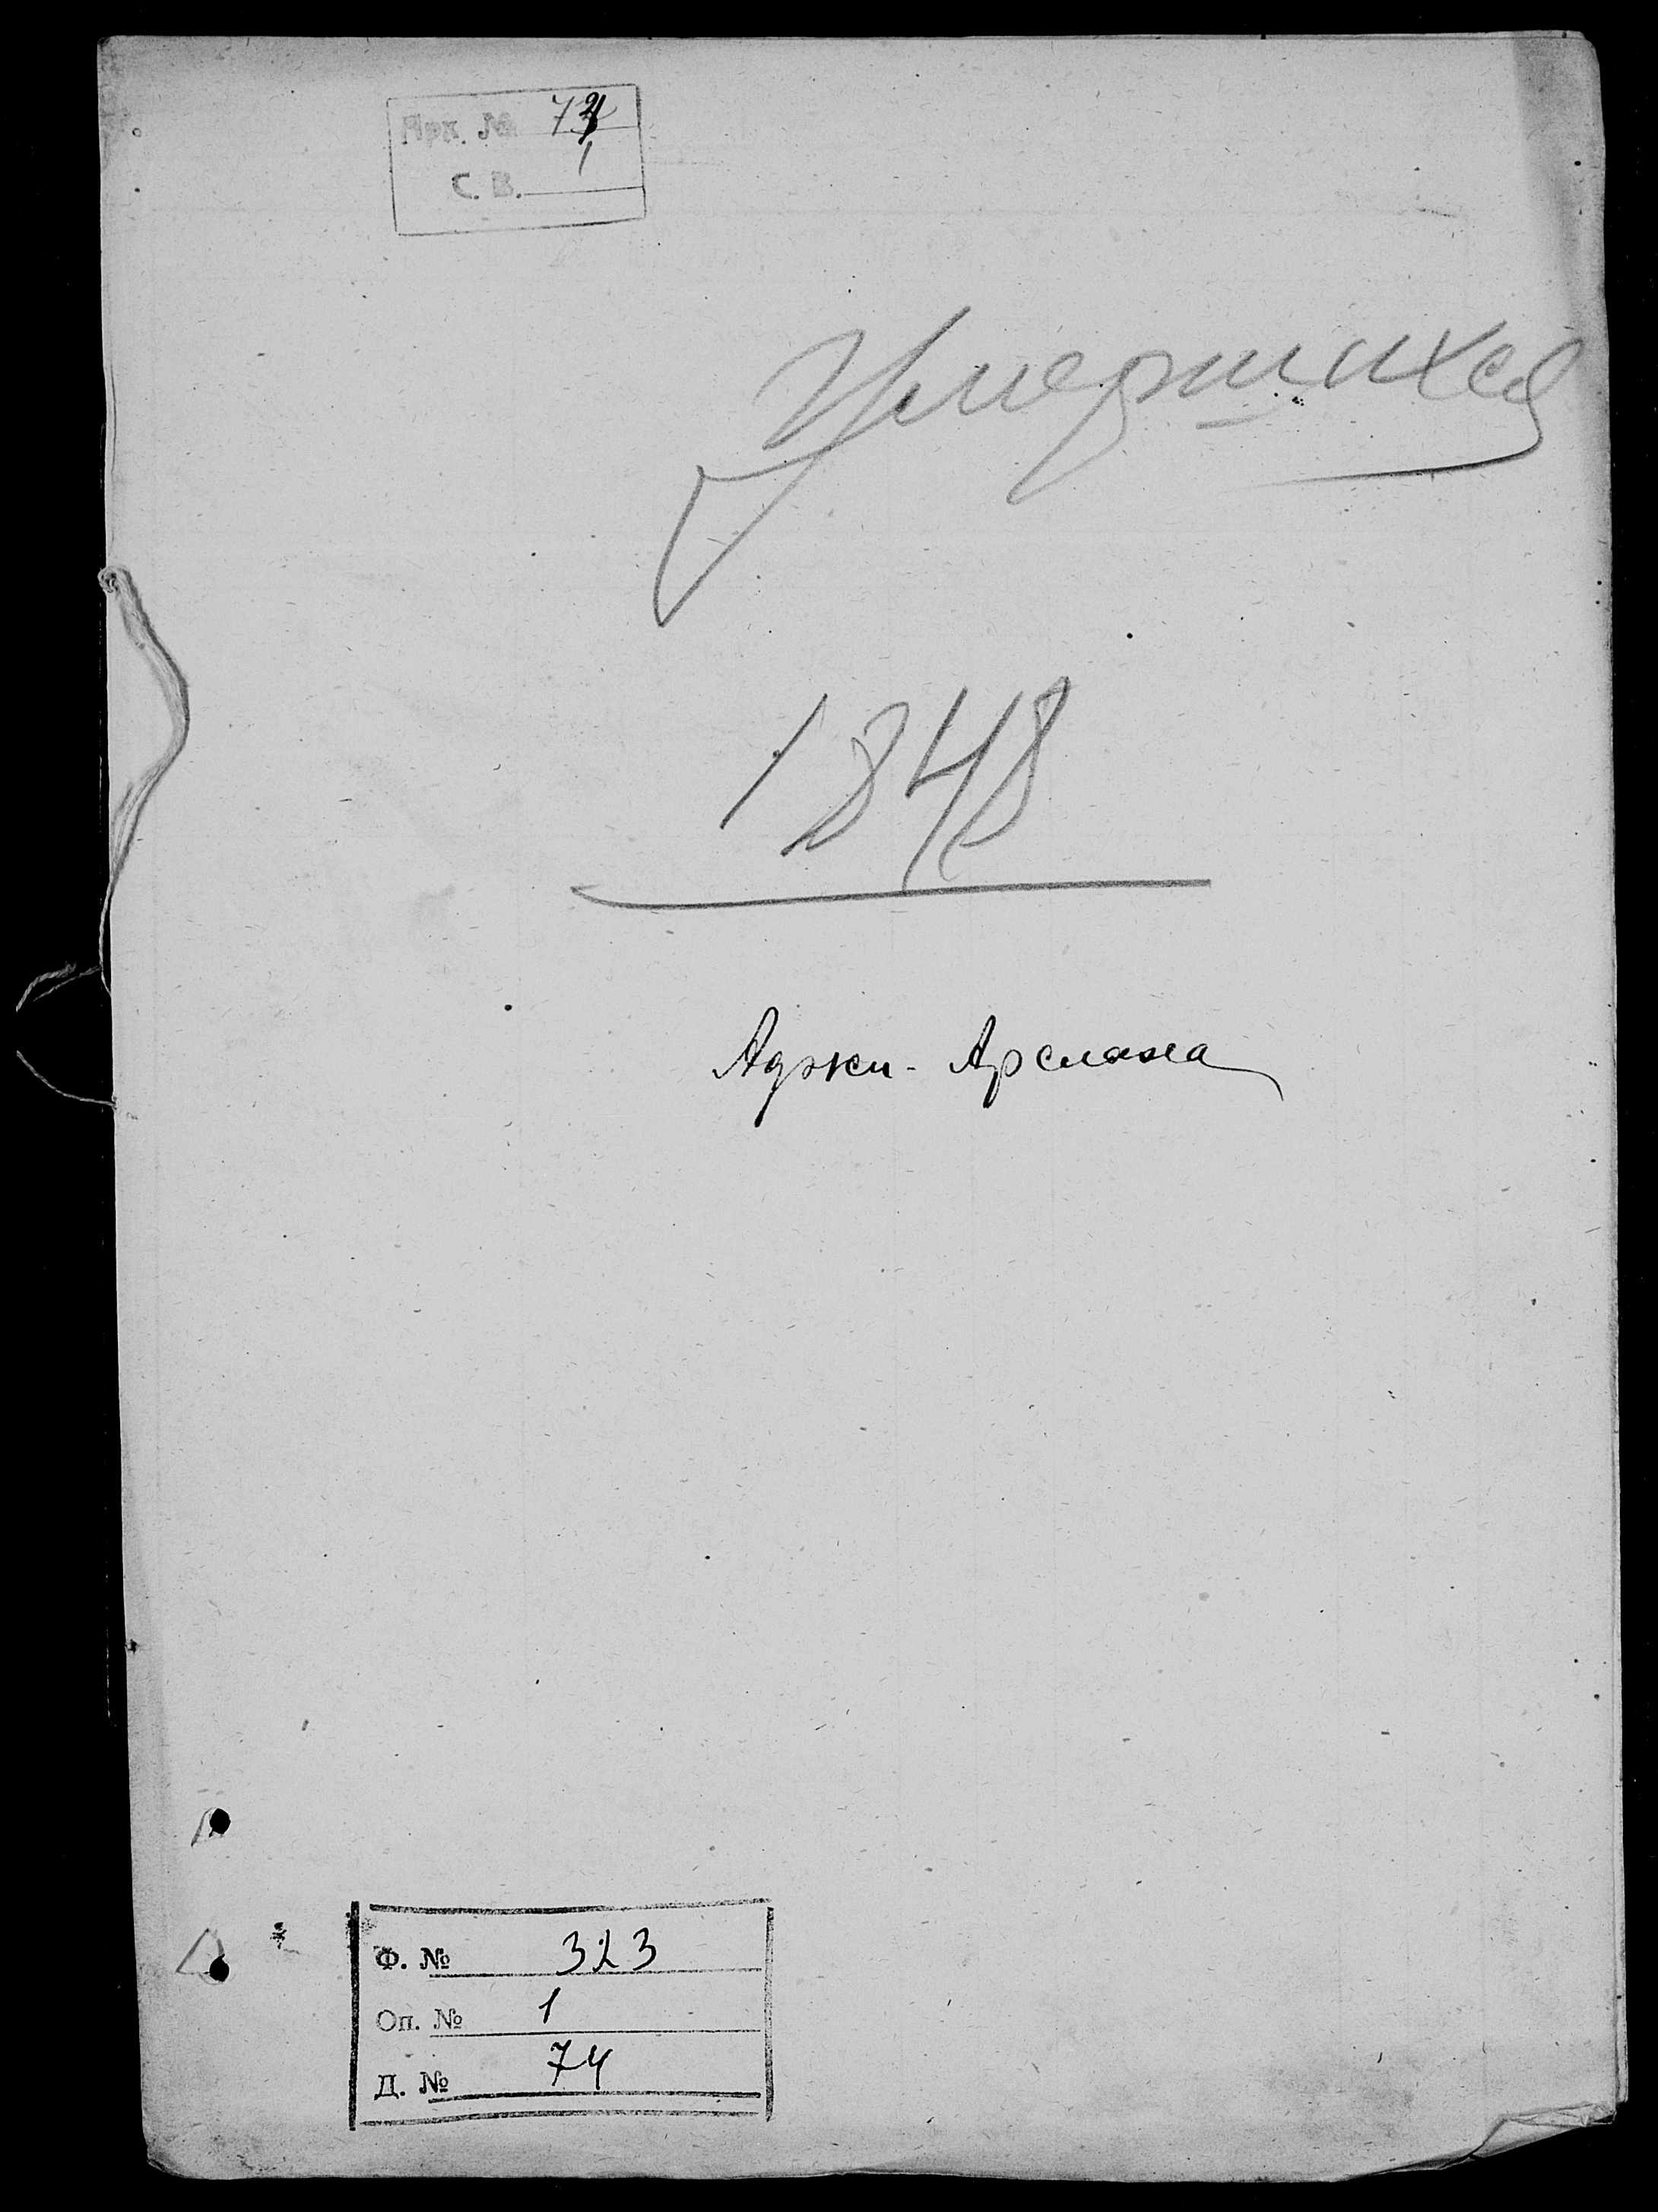 Арх. № 74
С. В. 1
Умершихся
1848
Аджи-Арслана
Ф. № 323
Оп. № 1
Д. № 74